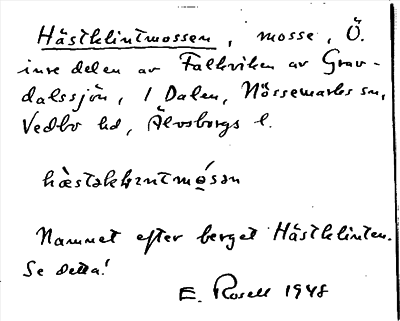 Hästklintmossen, mosse, Ö.
inre delen av Falkviken av Grav-
dalssjön, 1 Dalen, Nössemarks sn,
Vedbo hd, Älvsborgs l.
Namnet efter berget Hästklinten.
Se detta!
E. Rosell 1948